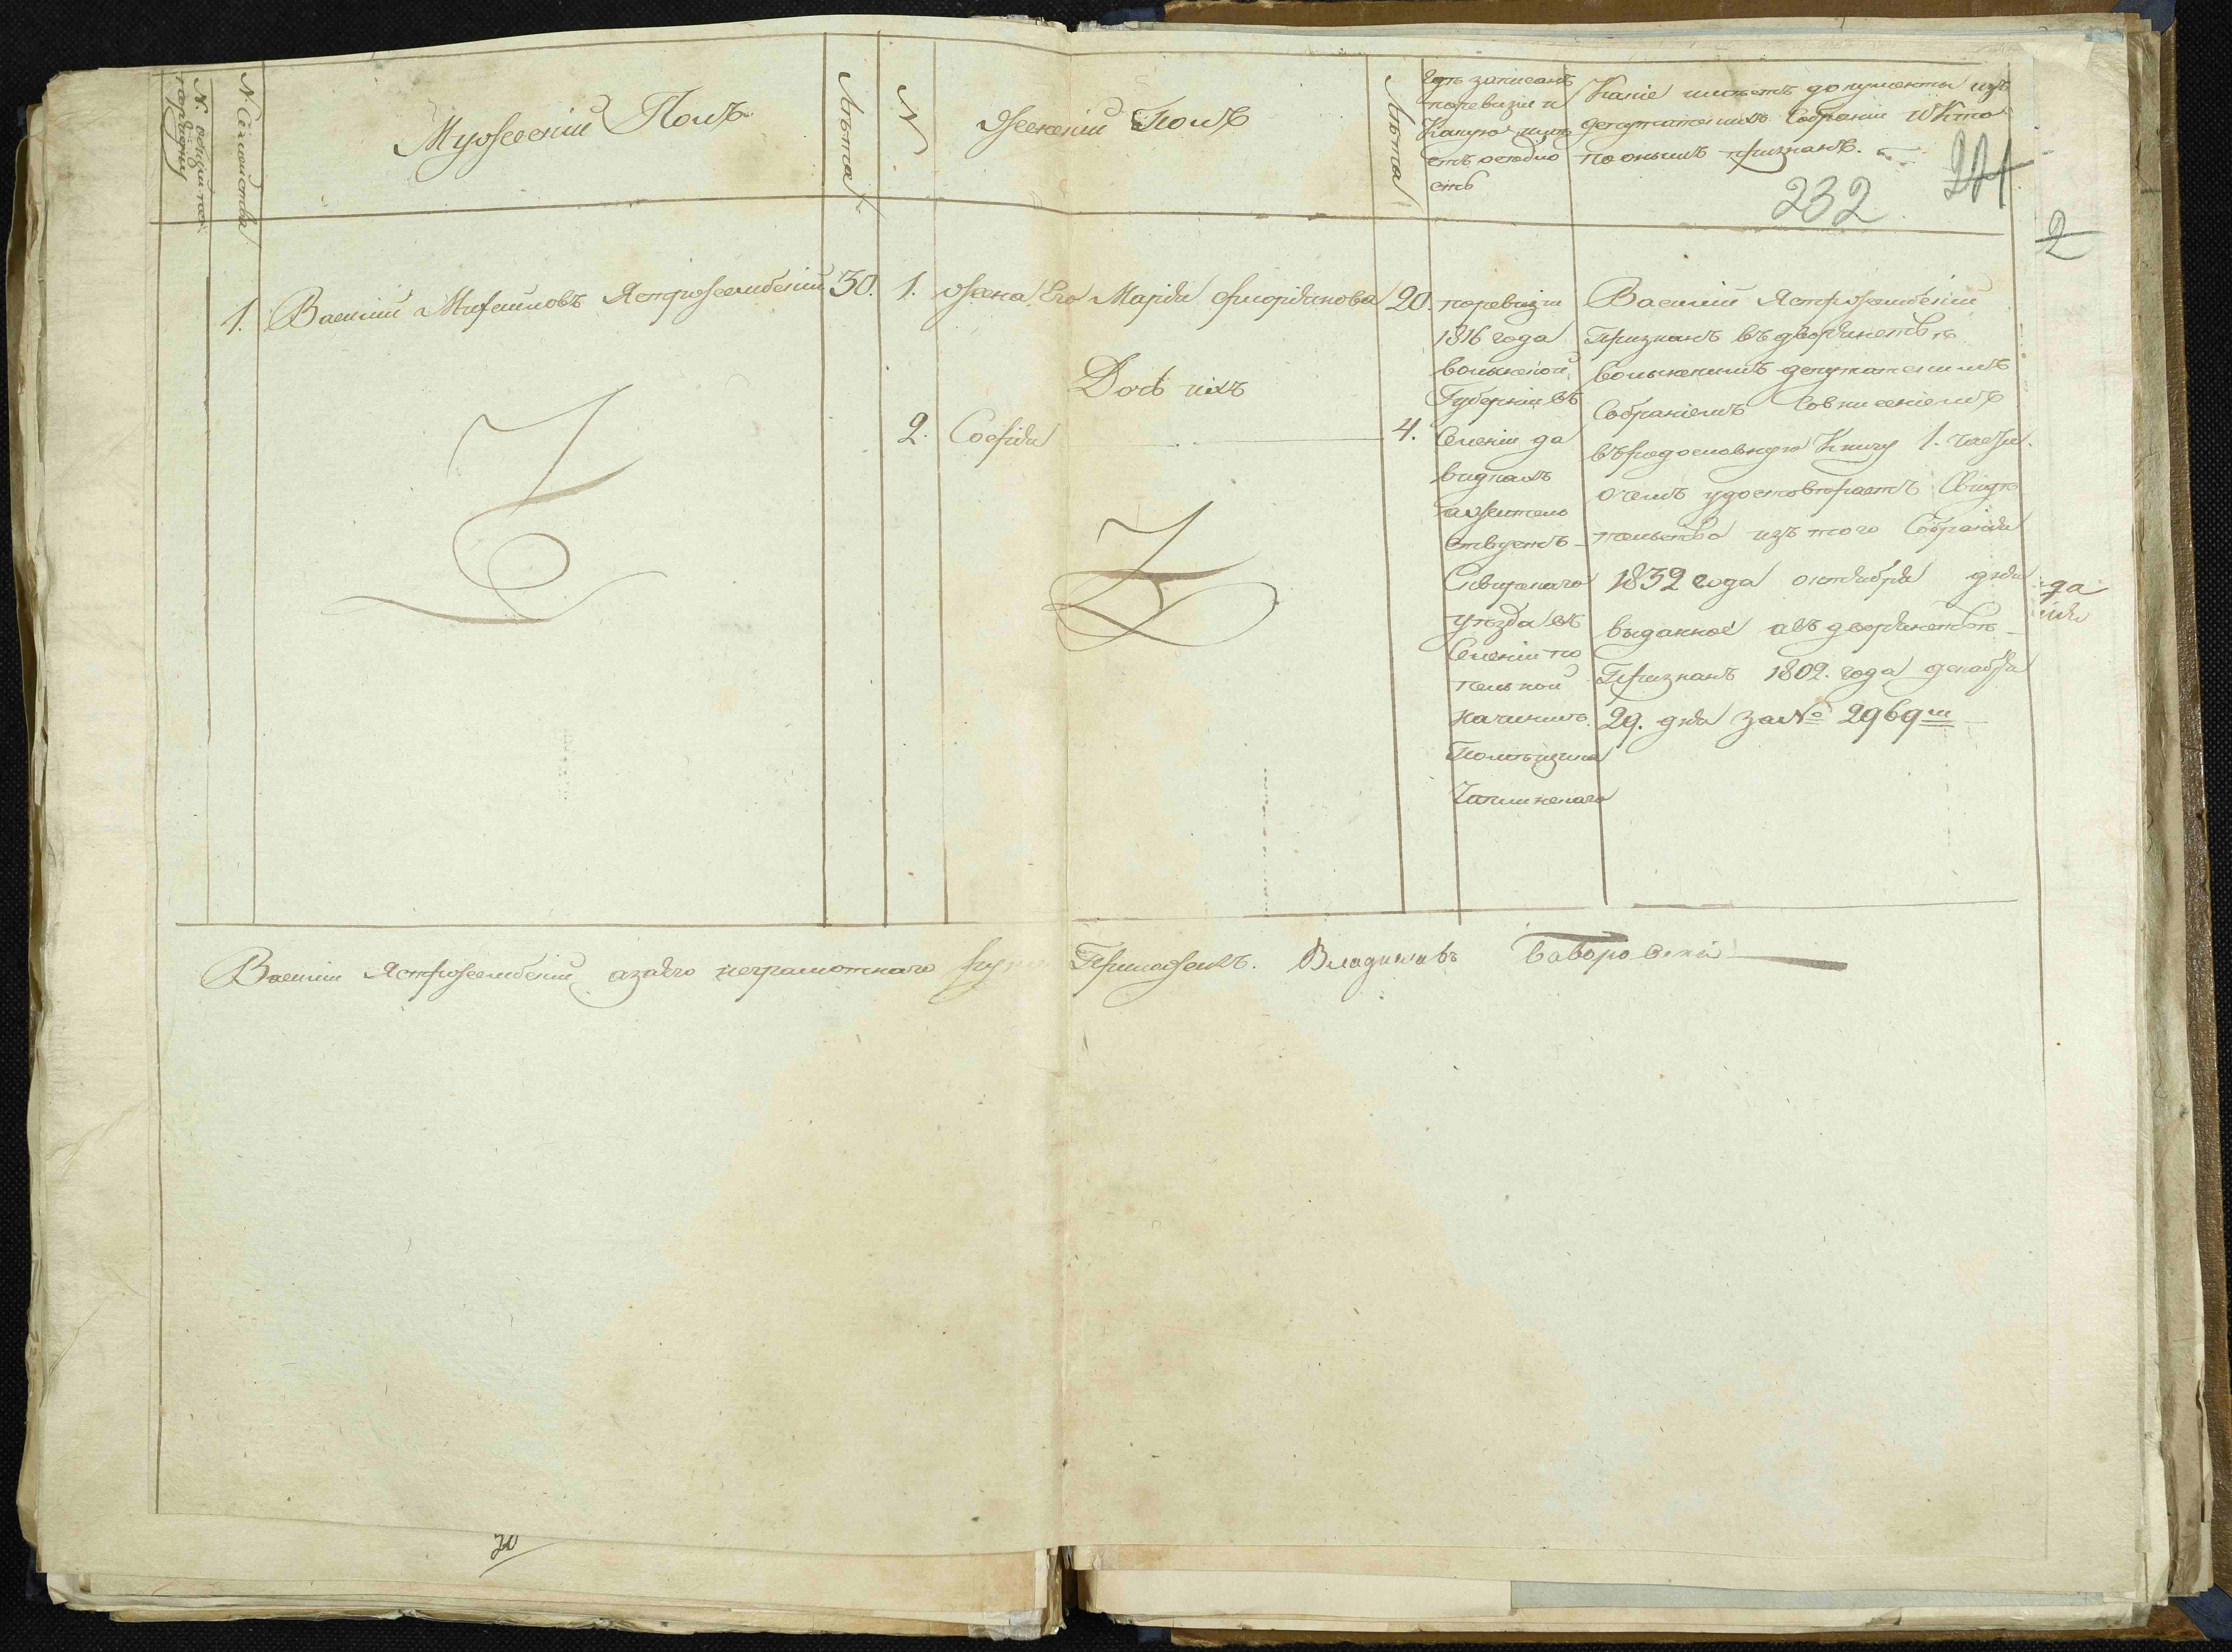 N. общій по порядку
N. Семейства
Мужескій Полъ
Лѣта
N.
Женскій Полъ
Лѣта
Гдѣ записанъ
по ревизіи и
Какую имѣ
етъ осѣдло
сть
Какіе имѣетъ документы изъ
депутатскихъ Собраній и Кто
по онымъ признанъ.
232
2
1. Василій Михайловъ Ястржембскій 30.
1. жена Его Марія Флоріянова 20.
Дочь ихъ
2. Софія 4.
по ревизіи
1816 года
волынской
Губерніи въ
Селеніи да
видкахъ
а жительс
твуетъ
Сквирскаго
уѣзда въ
Селеніи по
пельной
помѣщика
Василій Ястржембскій
Признанъ въ дворянствѣ
волынскимъ депутатскимъ
Собраніемъ Совнесеніемъ
въ родословную Книгу 1. часть.
о чемъ удостовѣряетъ Свидѣ
тельство изъ того Собранія
1832 года октября дня
выданное а въ дворянствѣ
Признанъ 1802. года декабря
29. дня за № 2969м
да
Василій Ястржембскій а за его неграмотнаго руку Приложилъ. Владиславъ Баворовскій
20